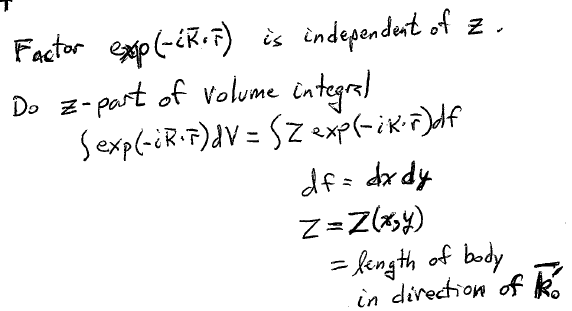 Factor exp(-iK̄·r̄) is independent of z.
Do z-part of volume integral
∫exp(-iK̄·r̄)dV = ∫Z exp(-iK·r̄)df
df = dxdy
Z = Z(x,y)
= length of body
in direction of k̄₀